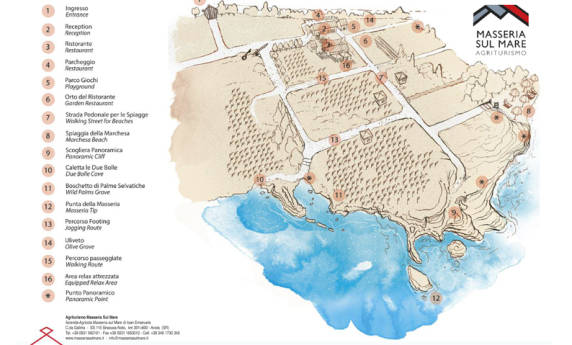 1 Ingresso
Entrance
2 Reception
Reception
3 Ristorante
Restaurant
4 Parcheggio
Restaurant
5 Parco Giochi
Playground
6 Orto del Ristorante
Garden Restaurant
7 Strada Pedonale per le Spiagge
Walking Street for Beaches
8 Spiaggia della Marchesa
Marchesa Beach
9 Scogliera Panoramica
Panoramic Cliff
10 Caletta le Due Bolle
Due Bolle Cove
11 Boschetto di Palme Selvatiche
Wild Palms Grove
12 Punta della Masseria
Masseria Tip
13 Percorso Footing
Jogging Route
14 Uliveto
Olive Grove
15 Percorso passeggiate
Walking Route
16 Area relax attrezzata
Equipped Relax Area
Punto Panoramico
Panoramic Point
Agriturismo Masseria Sul Mare
Azienda Agricola Masseria sul Mare di
C.da Gallina - SS 115 Siracusa-Noto, km 391+600 - Avola (SR)
www.masseriasulmare.it | info@masseriasulmare.it
MASSERIA
SUL MARE
AGRITURISMO
4
14
5
2
6
16
15
7
8
13
10
11
9
12